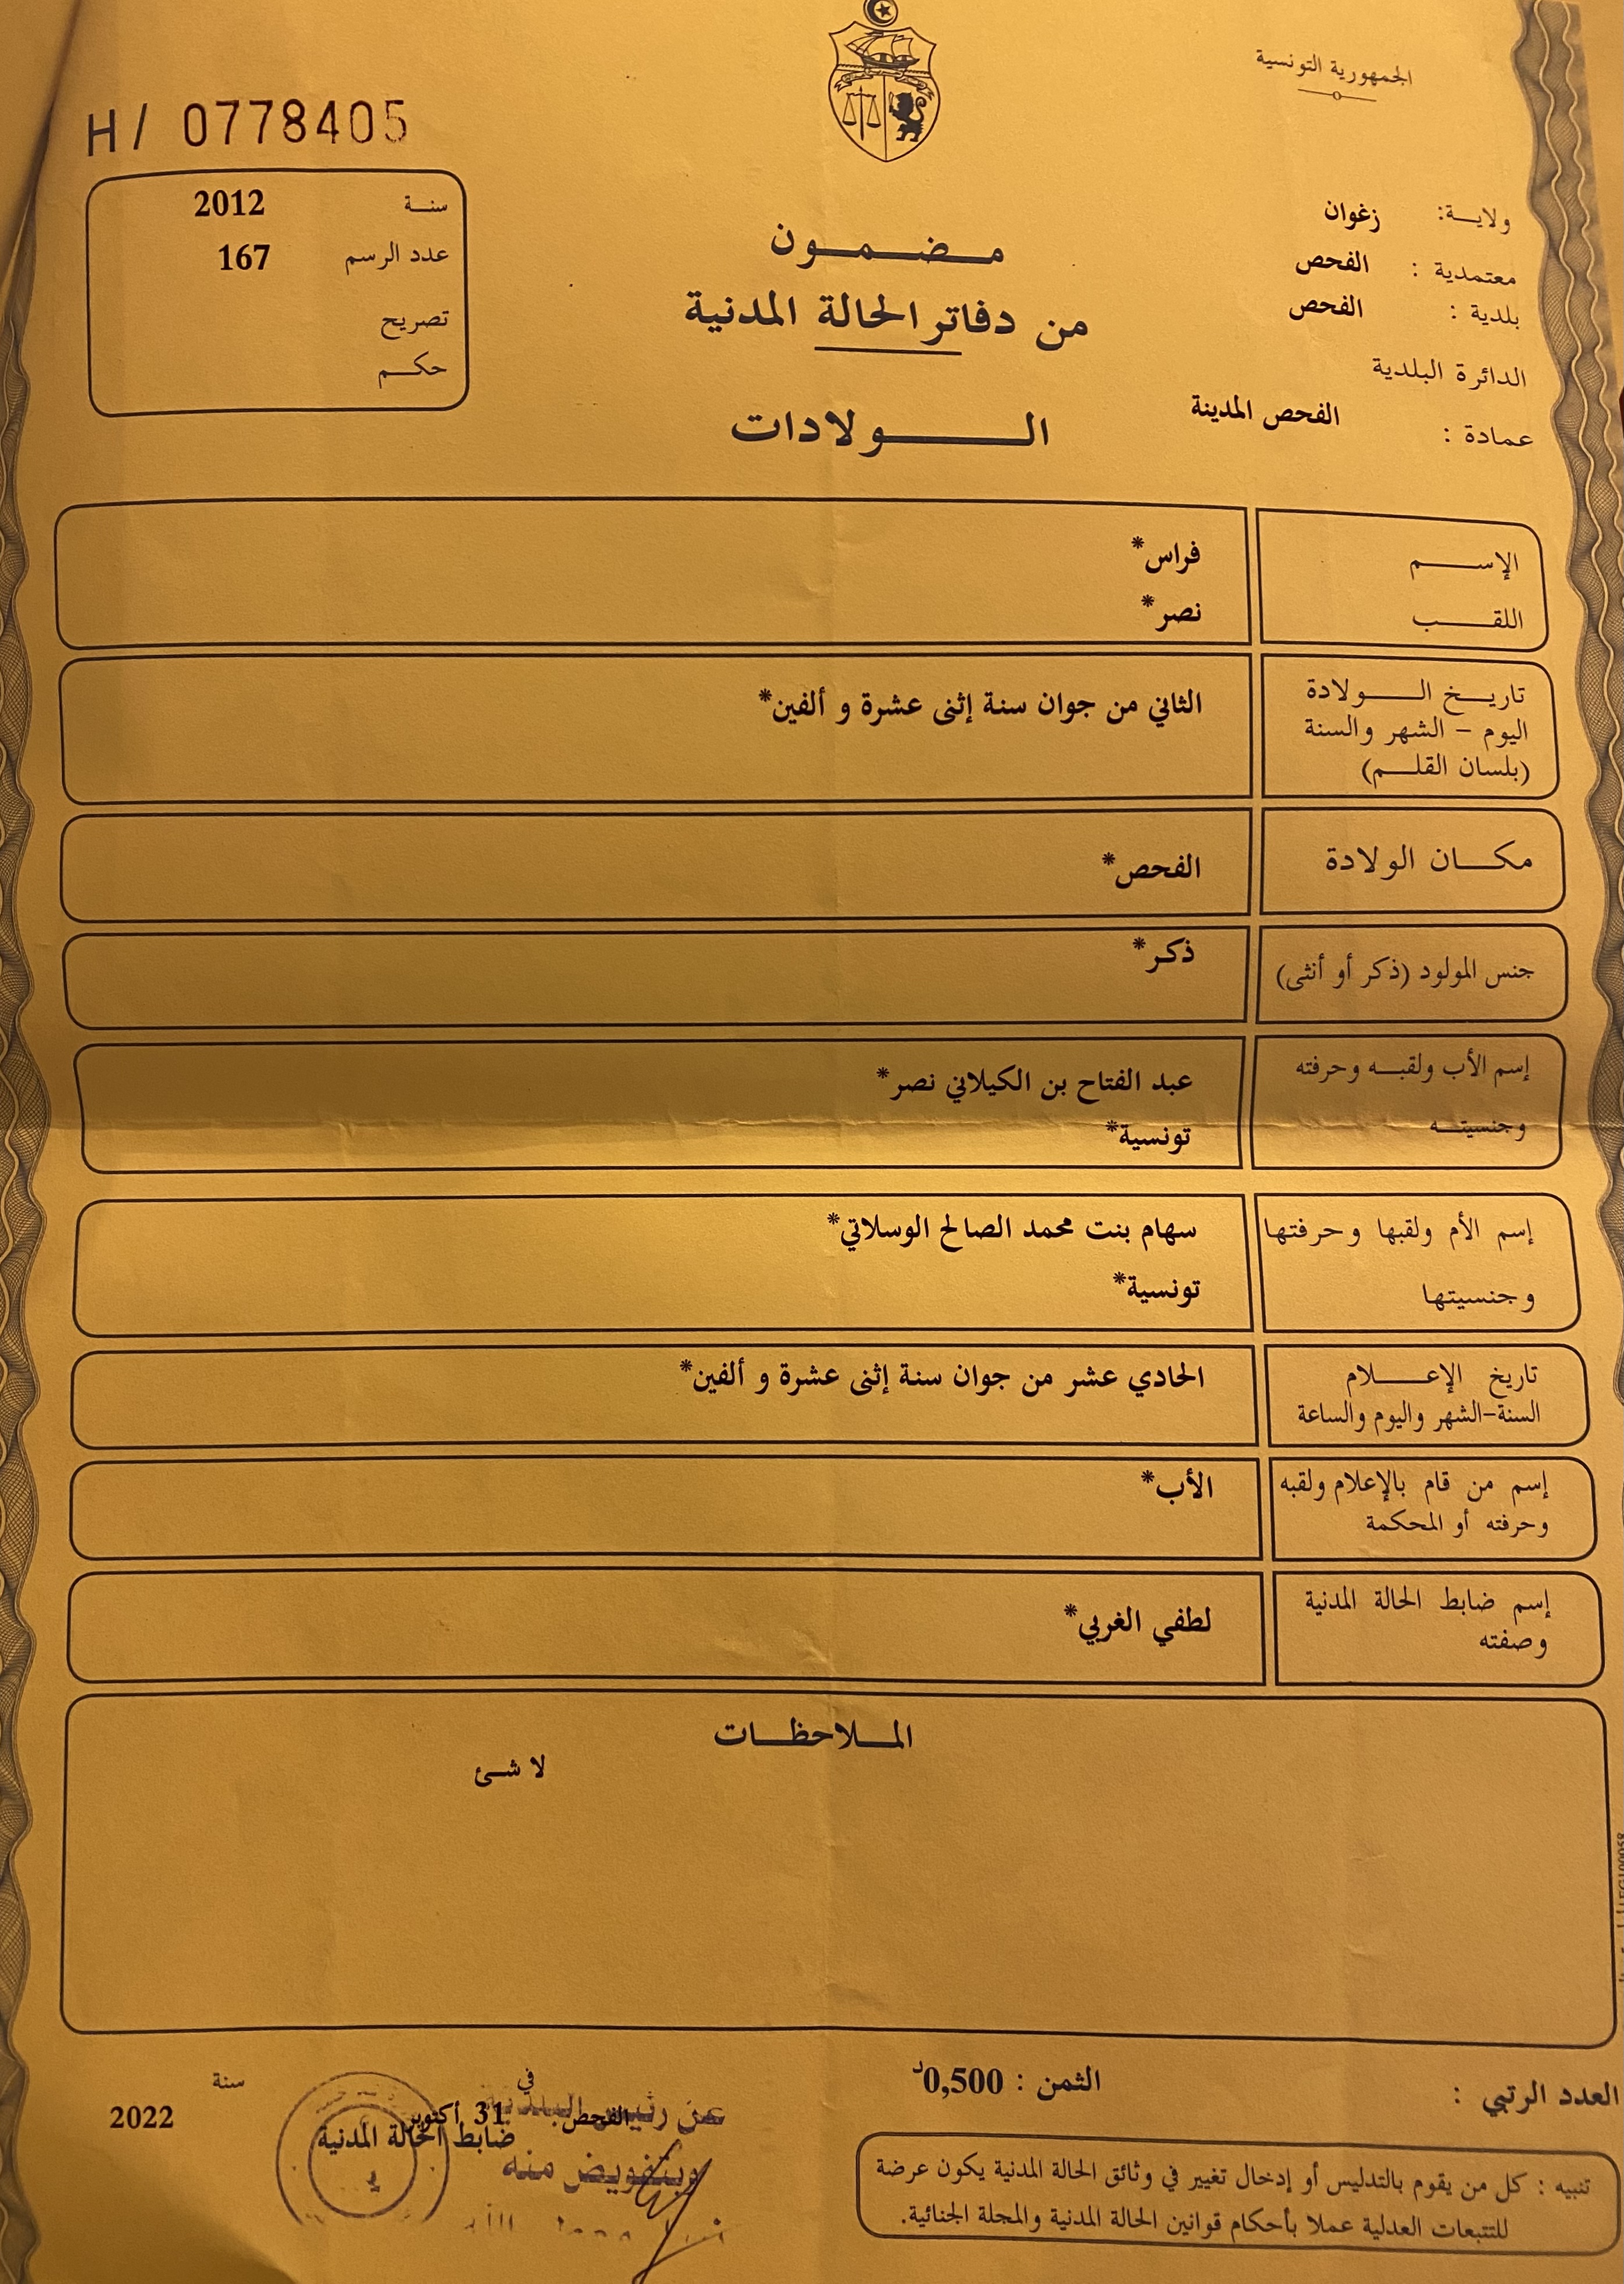 الجمهورية التونسية
H/ 0778405
سنة 2012
عدد الرسم 167
تصريح
حكم
ولاية: زغوان
معتمدية : الفحص
بلدية : الفحص
الدائرة البلدية
عمادة : الفحص المدينة
مضمون
من دفاتر الحالة المدنية
الولادات
الإسم فراس*
اللقب نصر*
تاريخ الولادة
اليوم - الشهر والسنة
(بلسان القلم)
الثاني من جوان سنة إثنى عشرة و ألفين*
مكان الولادة الفحص*
جنس المولود (ذكر أو أنثى) ذكر*
إسم الأب ولقبه وحرفته عبد الفتاح بن الكيلاني نصر*
وجنسيته تونسية*
إسم الأم ولقبها وحرفتها سهام بنت محمد الصالح الوسلاتي*
وجنسيتها تونسية*
تاريخ الإعلام
السنة-الشهر واليوم والساعة
الحادي عشر من جوان سنة إثنى عشرة و ألفين*
إسم من قام بالإعلام ولقبه
وحرفته أو المحكمة
الأب*
إسم ضابط الحالة المدنية
وصفته
لطفي الغربي*
الملاحظات
لا شئ
العدد الرتبي :
الثمن : 0,500د
تنبيه : كل من يقوم بالتدليس أو إدخال تغيير في وثائق الحالة المدنية يكون عرضة
للتتبعات العدلية عملا بأحكام قوانين الحالة المدنية والمجلة الجنائية.
الفحص في 31 أكتوبر سنة 2022
ضابط الحالة المدنية
عن رئيس البلدية
وبتفويض منه